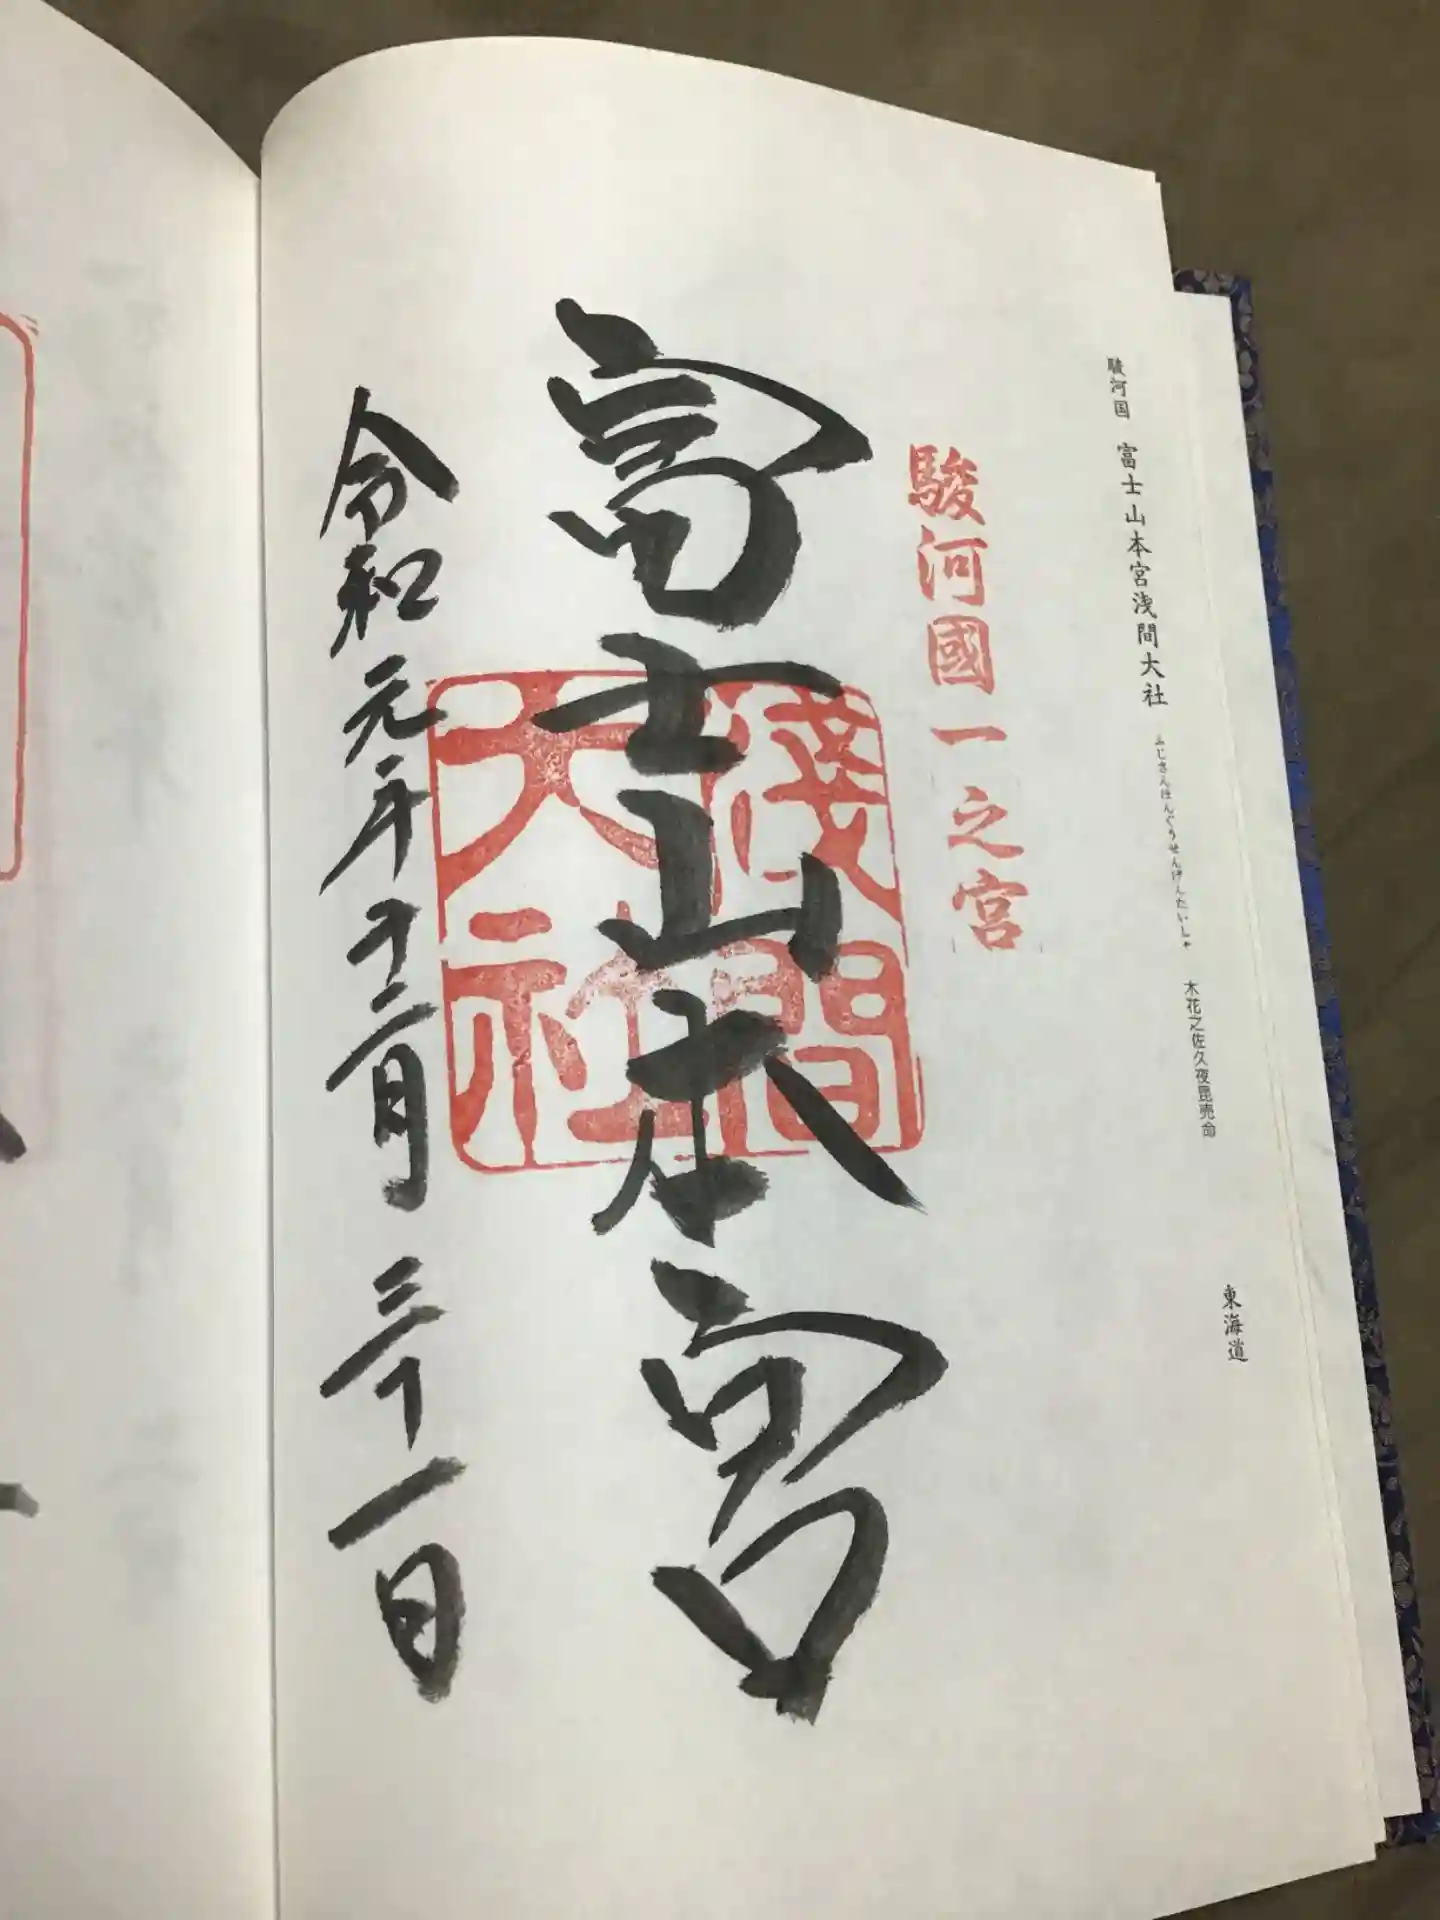 駿河国 富士山本宮浅間大社 ふじさんほんぐうせんげんたいしゃ 木花之佐久夜毘売命 東海道
駿河國一之宮
富士山本宮
淺間大社
令和元年十二月三十一日